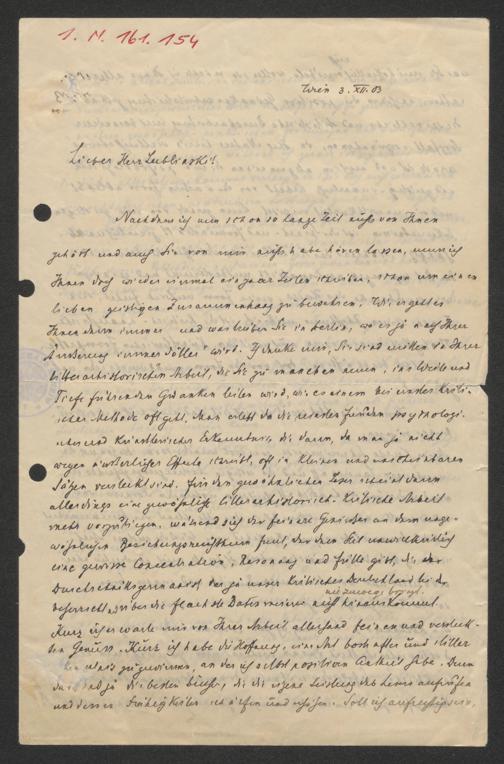 I. N. 161.154
Wien 3. XII. 03
Lieber Herr Lublinski!
Nachdem ich nun schon so lange Zeit nichts von Ihnen
gehört und auch Sie von mir nichts habe hören lassen, muss ich
Ihnen doch wieder einmal ein paar Zeilen schreiben, schon um einen
lieben geistigen Zusammenhang zu bewahren. Wie ergeht es
Ihnen denn immer und was treiben Sie in Berlin, wo es ja nach Ihrer
Äusserung immer "döller" wird. Ich denke mir, Sie sind mitten in Ihrer
litterarhistorischen Arbeit, die Sie zu manchen neuen, in Weite und
Tiefe führenden Gedanken leiten wird, wie es einem bei Ihrer kriti-
schen Methode oft geht. Man erlebt da die reinsten Freuden psychologi-
scher und künstlerischer Erkenntnis, die dann, da man ja nicht
wegen äusserlicher Effecte schreibt, oft in kleinen und unscheinbaren
Sätzen versteckt sind. Für den gewöhnlichen Leser scheint dann
allerdings eine gewöhnliche litterarhistorisch-kritische Arbeit
vorzuliegen, während sich der feinere Geniesser an dem unge-
wöhnlichen Beziehungsreichtum freut, der dem Stil unwillkürlich
eine gewisse Concentration, Resonanz und Fülle gibt, die der
Durchschnittsgermanist, der ja unser kritisches Deutschland
beherrscht, über die flachste Datenweisheit nicht hinauskommt.
Kurz ich erwarte mir von Ihrer Arbeit allerhand feinen und versteck-
ten Genuss. Kurz ich habe die Hoffnung, eine Art boshafter und stiller
zu gewinnen, an der ich selbst positiven Anteil habe. Denn
das sind ja die besten Bücher, die die eigene Leistung des Lesers aufrufen
und dessen Fähigkeiten vertiefen und erhöhen. Soll ich aufrichtig sein,